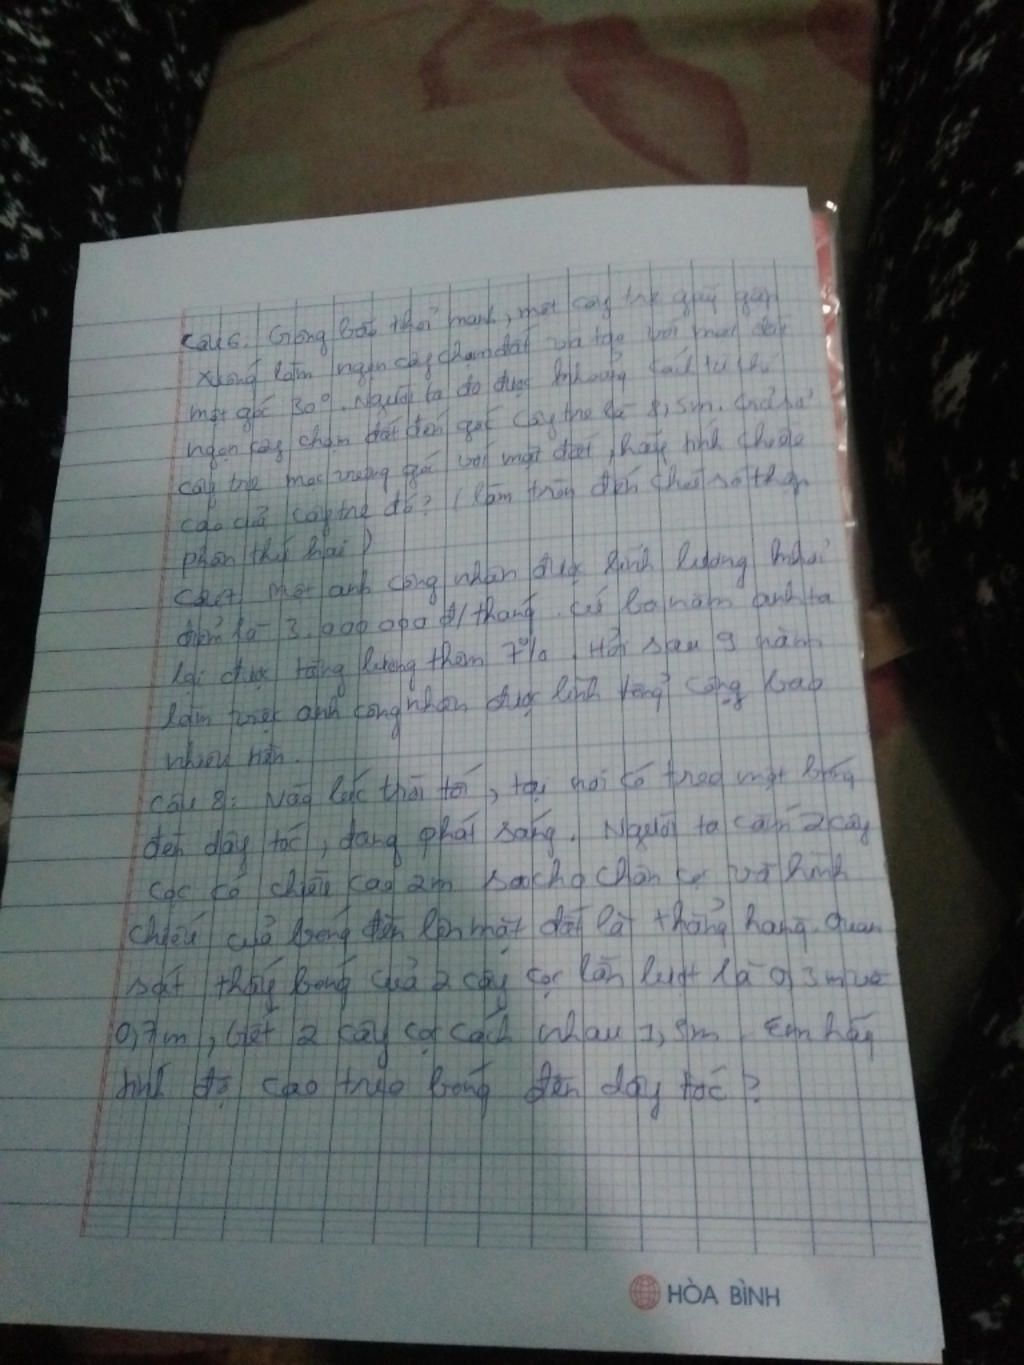 Câu 6. Trong bão thổi mạnh, một cây tre gãy gập
xuống làm ngọn cây chạm đất và tạo với mặt đất
một góc 30°. Người ta đo được khoảng cách từ chỗ
ngọn cây chạm đất đến gốc cây tre là 8,5m. Giả sử
cây tre mọc vuông góc với mặt đất, hãy tính chiều
cao của cây tre đó? (làm tròn đến chữ số thập
phân thứ hai)
Câu 7. Một anh công nhân được lĩnh lương khởi
điểm là 3.000 000 đ/tháng. Cứ ba năm anh ta
lại được tăng lương thêm 7%. Hỏi sau 9 năm
làm việc anh công nhân được lĩnh tổng cộng bao
nhiêu tiền.
Câu 8: Vào lúc trời tối, tại nơi có treo một bóng
đèn dây tóc, đang phát sáng. Người ta cắm 2 cây
cọc có chiều cao 2m sao cho chân cọc và hình
chiếu của bóng đèn lên mặt đất là thẳng hàng. Quan
sát thấy bóng của 2 cây cọc lần lượt là 0,3m và
0,7m, biết 2 cây cọc cách nhau 1,5m. Em hãy
tính độ cao treo bóng đèn dây tóc?
HÒA BÌNH